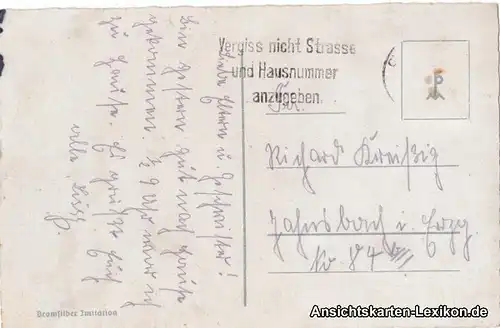 Liebe Eltern u. Geschwister!
Bin gestern gut nach Hause
gekommen. ½ 9 Uhr war ich
zu Hause. Es grüßt Euch
alle
Vergiss nicht Strasse
und Hausnummer
anzugeben
Fam.
Richard Kreißig
Jahnsbach i. Erzg.
No 84
Bromsilber Imitation
Ansichtskarten-Lexikon.de